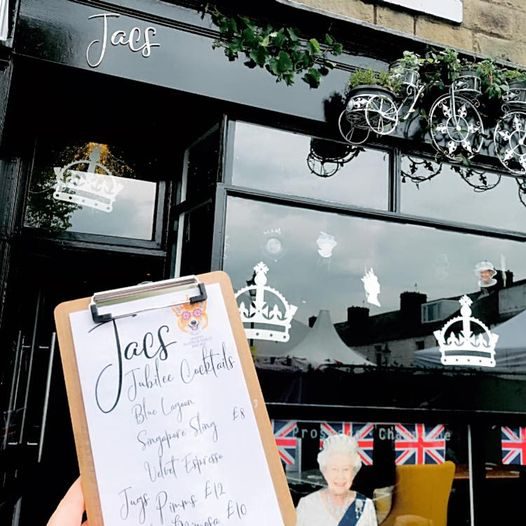 Jacs
Jacs
Jubilee Cocktails
Blue Lagoon
Singapore Sling £8
Velvet Espresso
Jugs Pimms £12
£10
Prosecco & Champagne